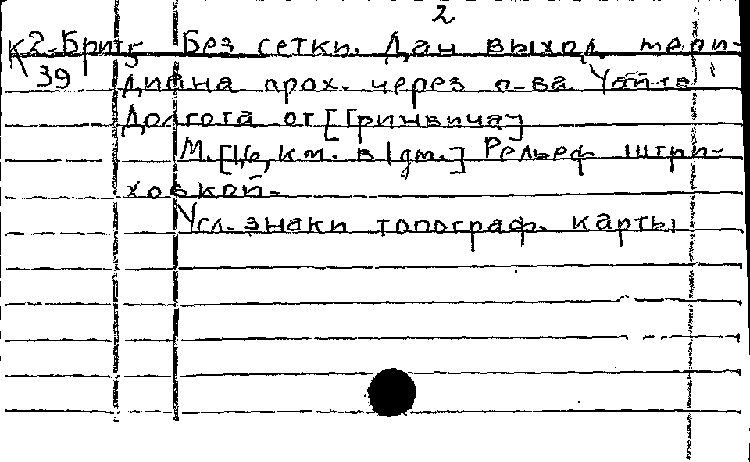 2
К2-Брит5 Без сетки. Дан выход мери-
39 диана прох. через о-ва Уайта
Долгота от [Гринвича]
М. [1,6, км. в 1 дм.] Рельеф штри-
ховкой.
Усл. знаки топограф. карты